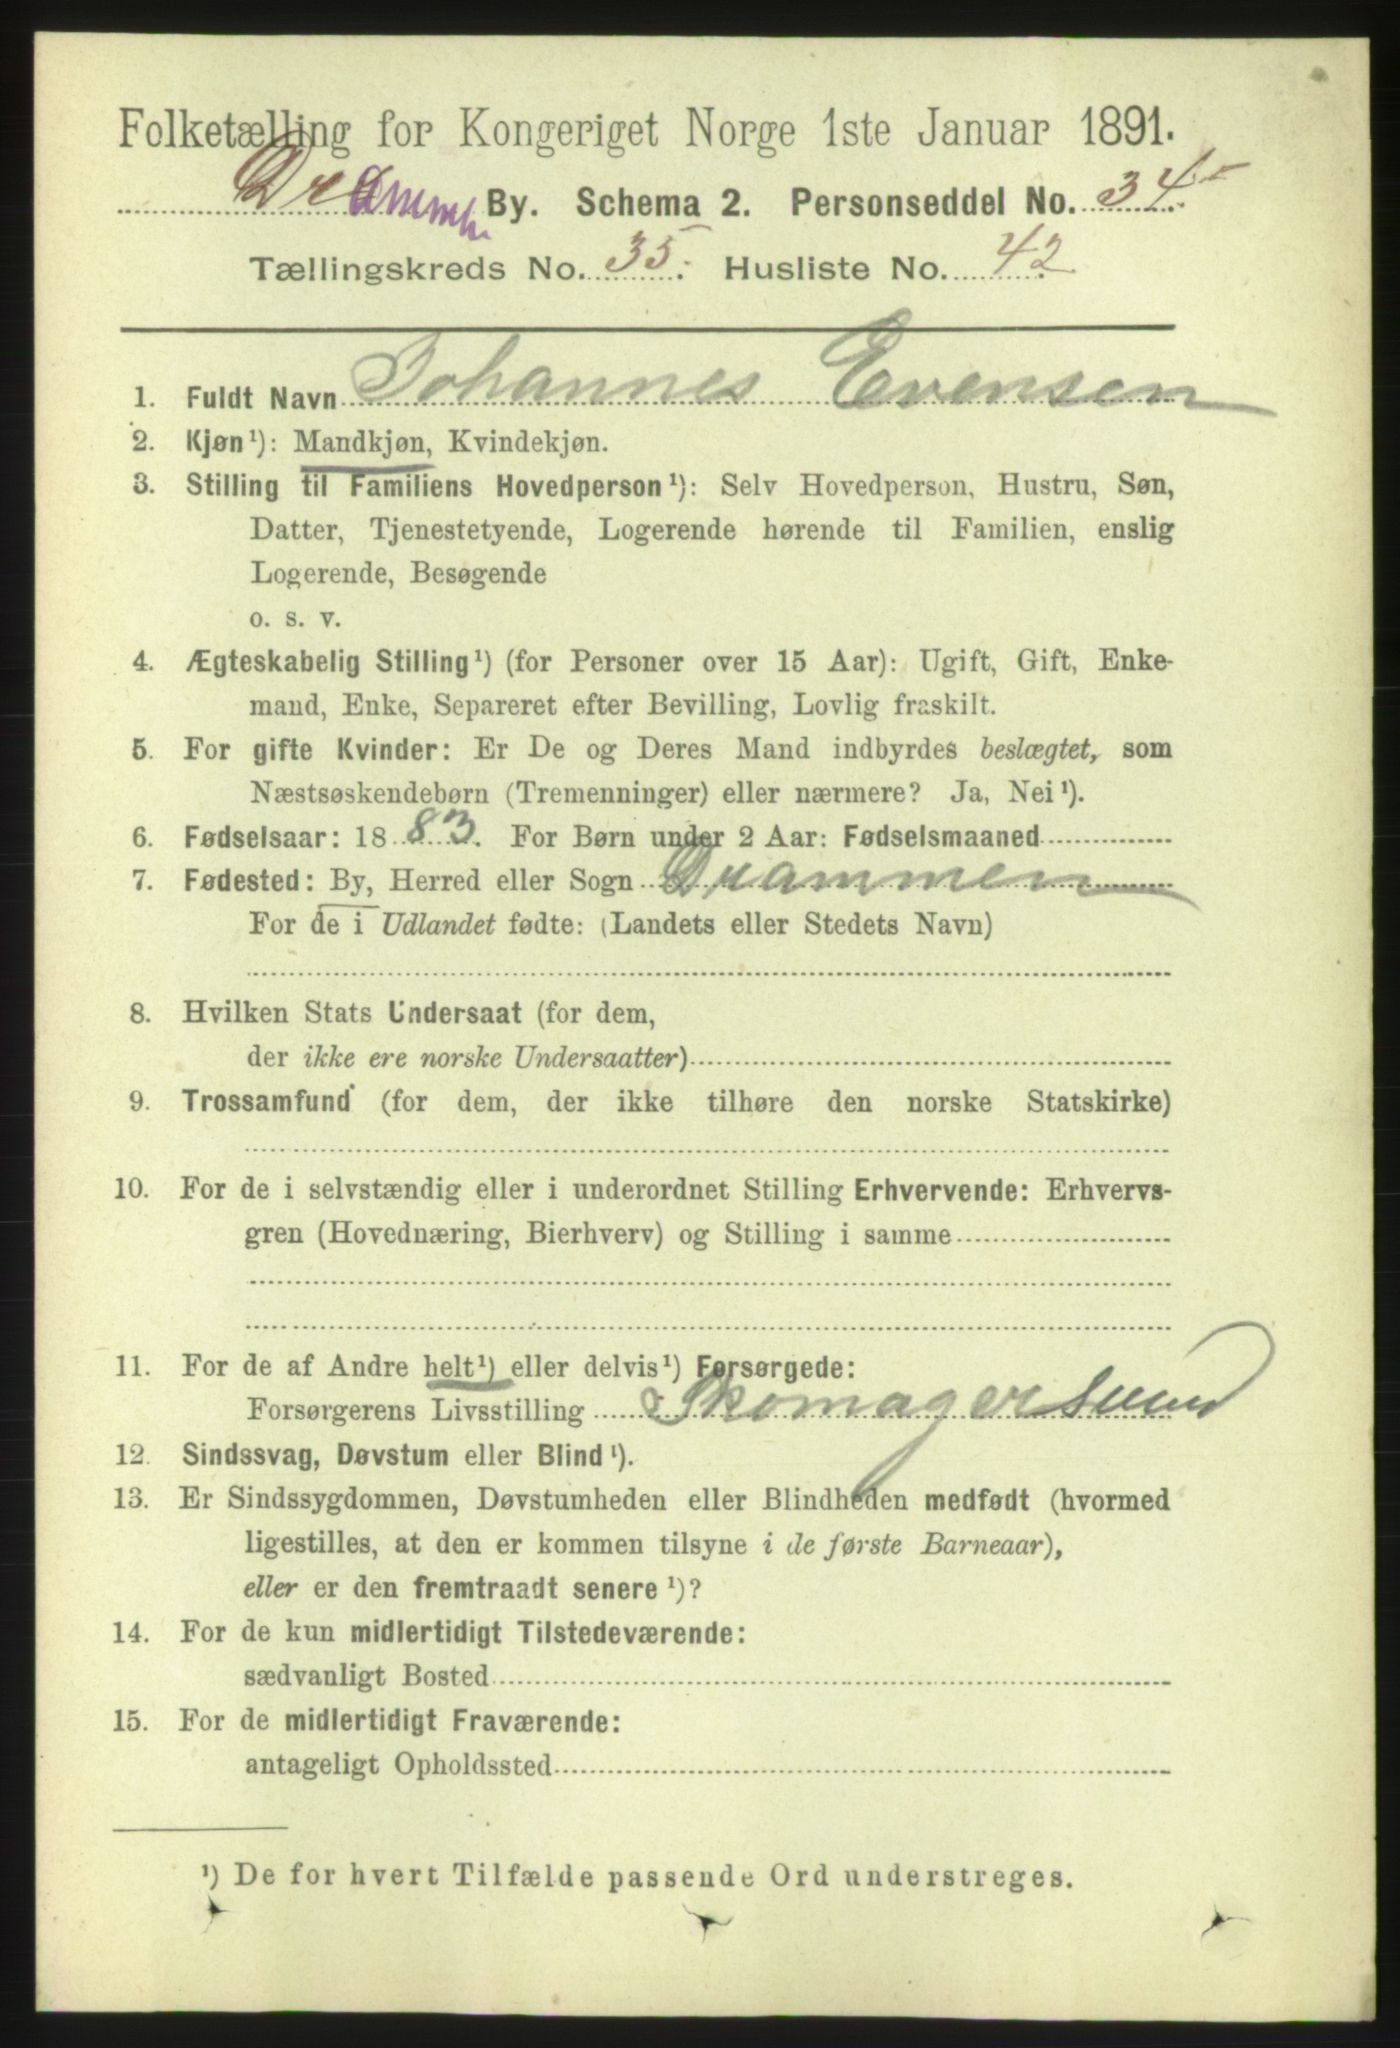 Folketælling for Kongeriget Norge 1ste Januar 1891.
Drammen By. Schema 2. Personseddel No. 34
Tællingskreds No. 35. Husliste No. 42
1. Fuldt Navn Johannes Evensen
2. Kjøn¹): Mandkjøn, Kvindekjøn.
3. Stilling til Familiens Hovedperson¹): Selv Hovedperson, Hustru, Søn,
Datter, Tjenestetyende, Logerende hørende til Familien, enslig
Logerende, Besøgende
o. s. v.
4. Ægteskabelig Stilling¹) (for Personer over 15 Aar): Ugift, Gift, Enke-
mand, Enke, Separeret efter Bevilling, Lovlig fraskilt.
5. For gifte Kvinder: Er De og Deres Mand indbyrdes beslægtet, som
Næstsøskendebørn (Tremenninger) eller nærmere? Ja, Nei¹).
6. Fødselsaar: 1883. For Børn under 2 Aar: Fødselsmaaned
7. Fødested: By, Herred eller Sogn Drammen
For de i Udlandet fødte: (Landets eller Stedets Navn)
8. Hvilken Stats Undersaat (for dem,
der ikke ere norske Undersaatter)
9. Trossamfund (for dem, der ikke tilhøre den norske Statskirke)
10. For de i selvstændig eller i underordnet Stilling Erhvervende: Erhvervs-
gren (Hovednæring, Bierhverv) og Stilling i samme
11. For de af Andre helt¹) eller delvis¹) Forsørgede:
Forsørgerens Livsstilling Skomagersvend
12. Sindssvag, Døvstum eller Blind¹).
13. Er Sindssygdommen, Døvstumheden eller Blindheden medfødt (hvormed
ligestilles, at den er kommen tilsyne i de første Barneaar),
eller er den fremtraadt senere¹)?
14. For de kun midlertidigt Tilstedeværende:
sædvanligt Bosted
15. For de midlertidigt Fraværende:
antageligt Opholdssted
¹) De for hvert Tilfælde passende Ord understreges.